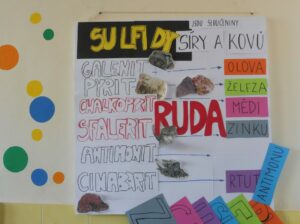 JSOU SLOUČENINY
SULFIDY SÍRY A KOVŮ
GALENIT OLOVA
PYRIT ŽELEZA
CHALKOPYRIT MĚDI
SFALERIT RUDA ZINKU
ANTIMONIT ANTIMONU
CINABARIT RTUT